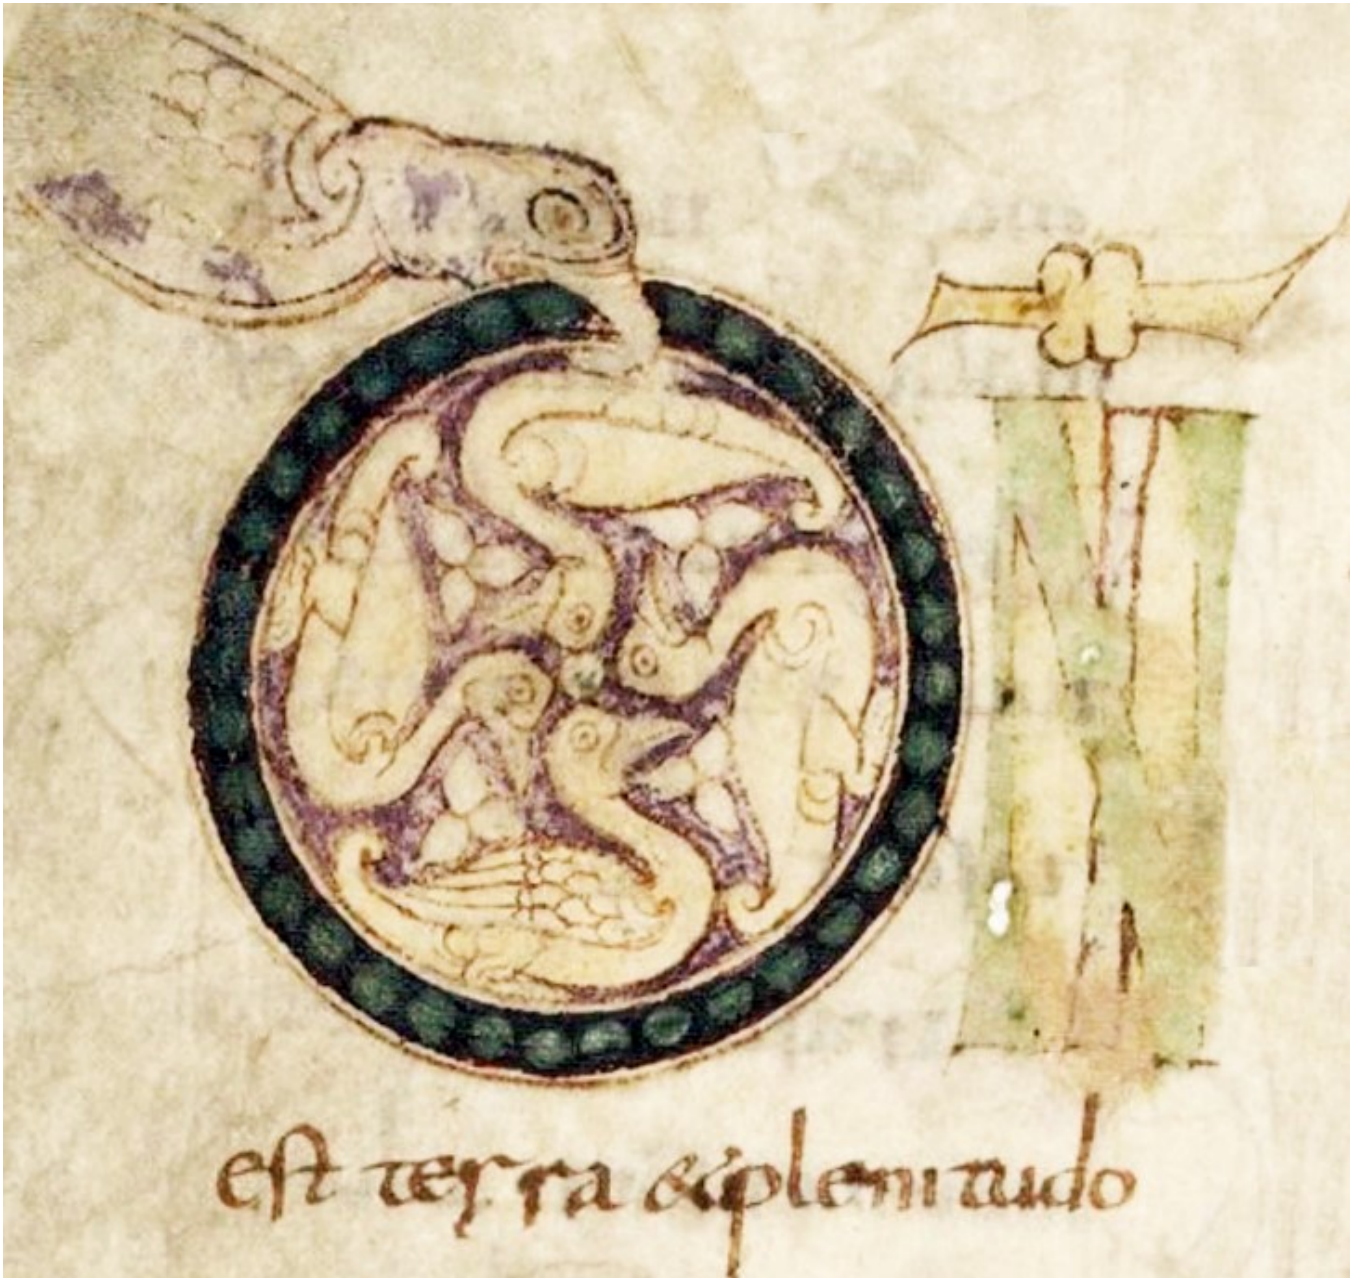 DN̄I
est terra & plenitudo